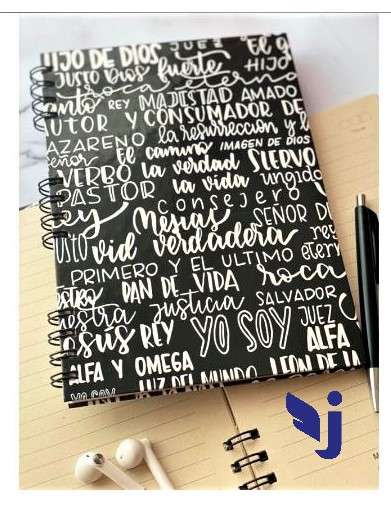 HIJO DE DIOS JUEZ El
JUSTO Dios fuerte HIJO
roca eterna
REY MAJESTAD AMADO
AUTOR Y CONSUMADOR DE
NAZARENO la resurrección y l
Señor El camino IMAGEN DE DIOS
VERBO la verdad SIERVO
PASTOR la vida ungido
Rey Consejero
Mesías SEÑOR DE
JUSTO vid verdadera rey
PRIMERO Y EL ULTIMO eterno
PAN DE VIDA roca
nuestra justicia SALVADOR
Jesús REY YO SOY JUEZ
ALFA
ALFA Y OMEGA LEON DE LA
YO SOY LUZ DEL MUNDO
j